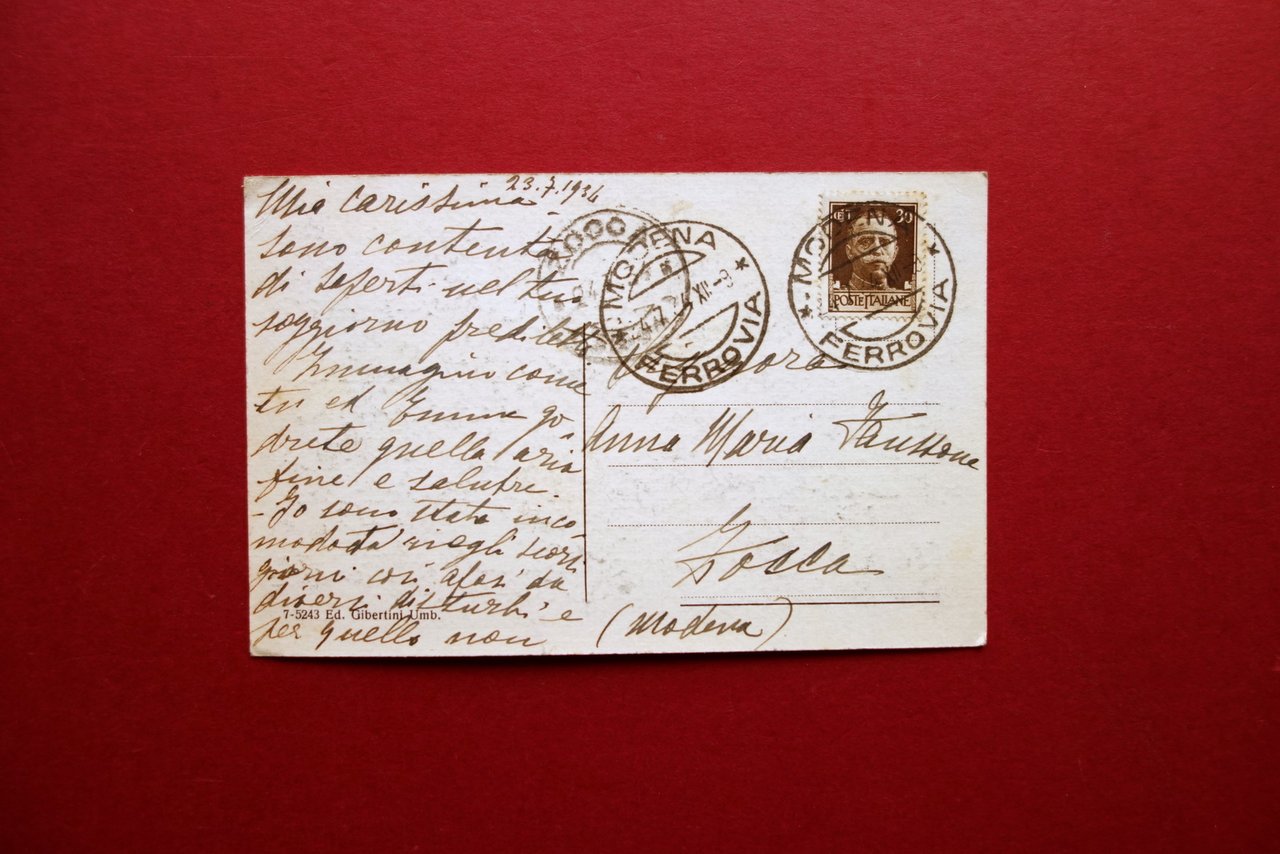 23.7.1934
Mia carissima
sono contenta
di saperti nel tuo
soggiorno prediletto
Immagino come
tu ed Emma go
drete quella aria
fine e salubre.
- Io sono stata inco
modata negli scorsi
giorni così afosi da
diversi disturbi e
per quello non
7-5243 Ed. Gibertini Umb.
MODENA
24.7.34 XII-9
FERROVIA
CEN. 30
POSTE ITALIANE
MODENA
FERROVIA
Signora
Anna Maria
(Modena)